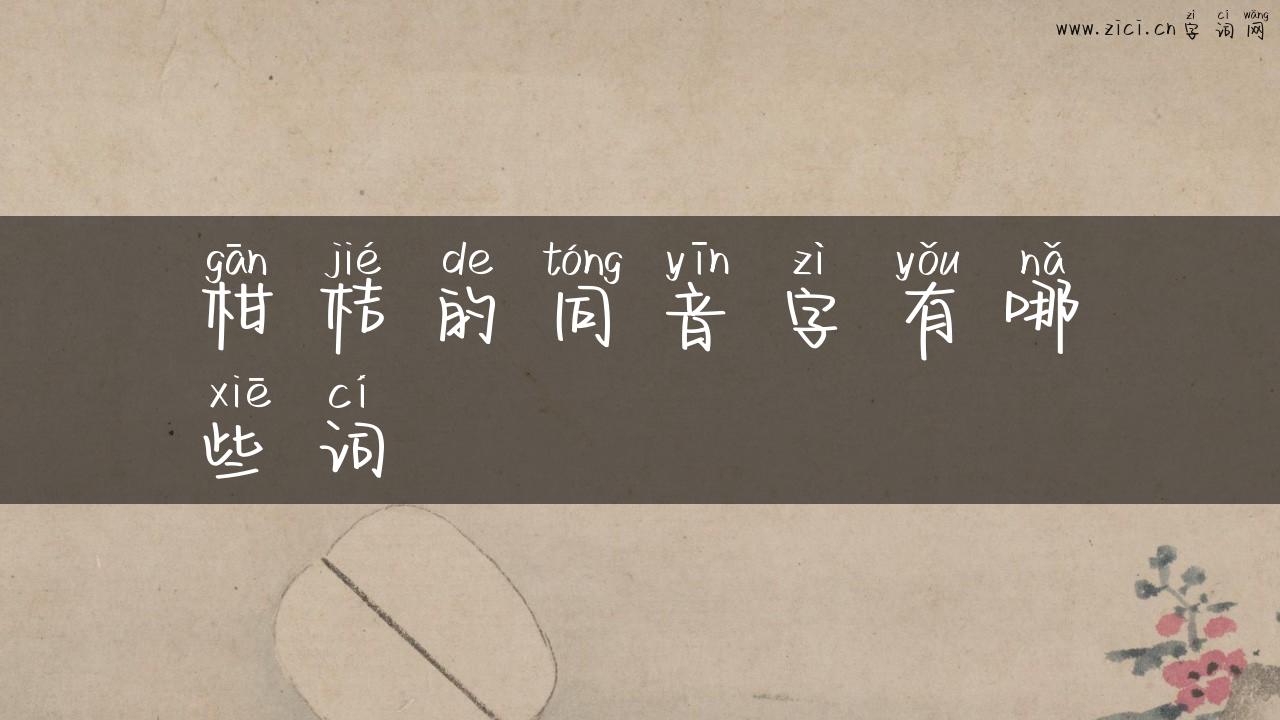 zì cí wǎng
www.zici.cn字词网
gān jié de tóng yīn zì yǒu nǎ
柑桔的同音字有哪
xiē cí
些词